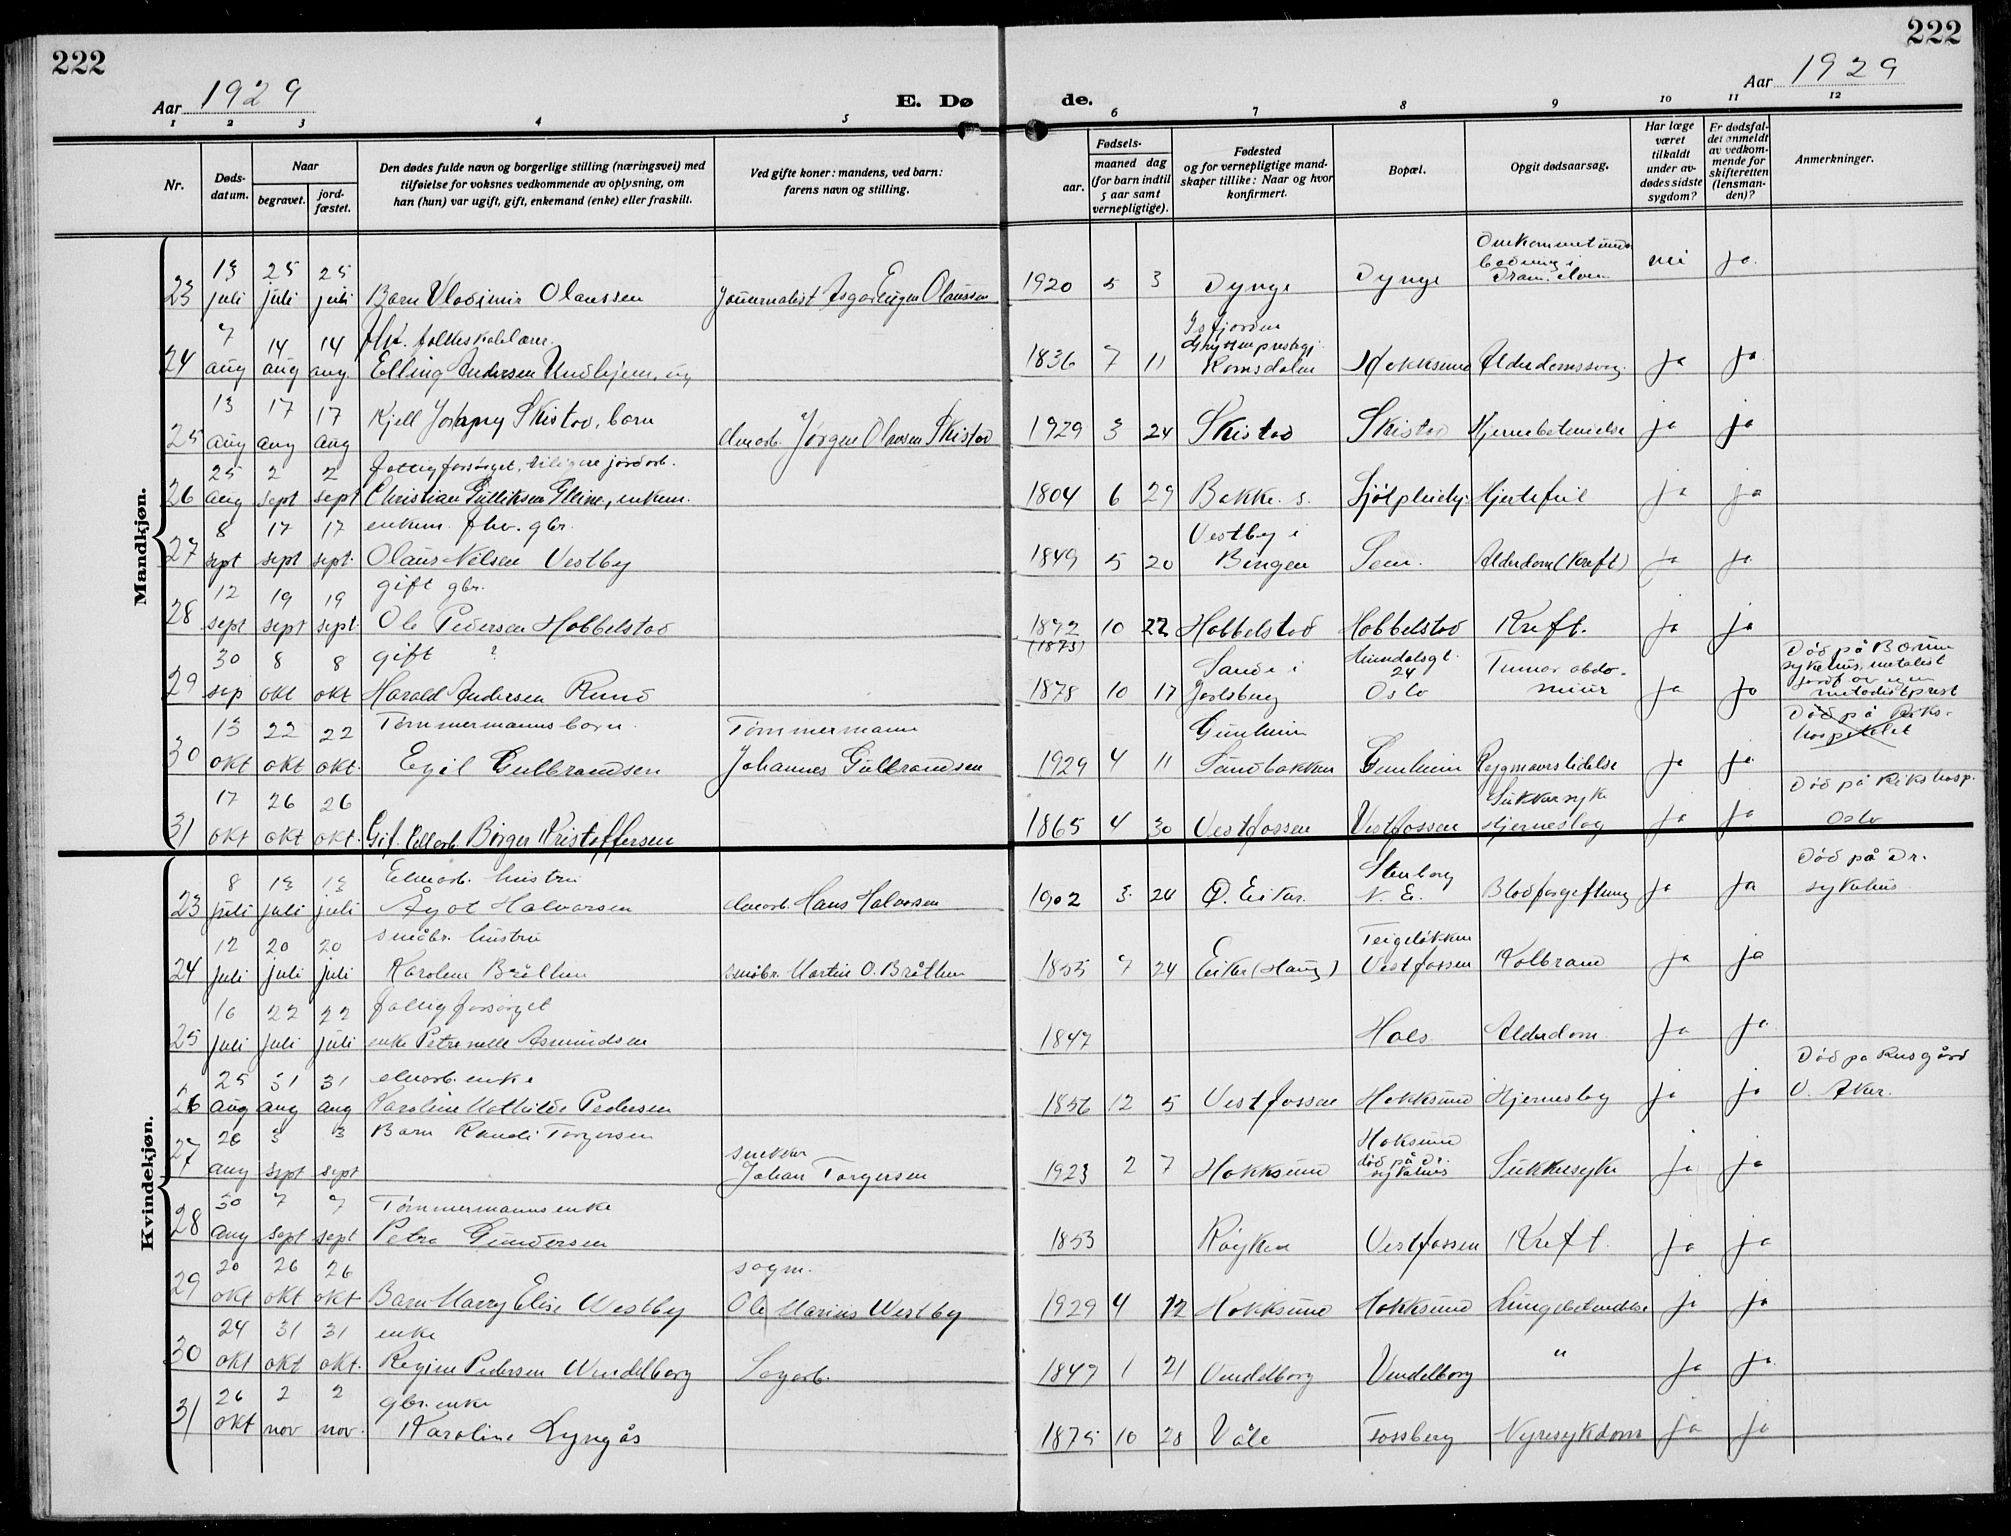 222
222
Aar 1929
E. Dø
de.
Aar 1929
1 2 3 4 5 6 7 8 9 10 11 12
Nr.
Døds-
datum.
Naar
begravet.
jord-
fæstet.
Den dødes fulde navn og borgerlige stilling (næringsvei) med
tilføielse for voksnes vedkommende av oplysning, om
han (hun) var ugift, gift, enkemand (enke) eller fraskilt.
Ved gifte koner: mandens, ved barn:
farens navn og stilling.
Fødsels-
aar.
maaned dag
(for barn indtil
5 aar samt
vernepligtige).
Fødested
og for vernepligtige mand-
skaper tillike: Naar og hvor
konfirmert.
Bopæl.
Opgit dødsaarsag.
Har læge
været
tilkaldt
under av-
dødes sidste
sygdom?
Er dødsfal-
det anmeldt
av vedkom-
mende for
skifteretten
(lensman-
den)?
Anmerkninger.
Mandkjøn.
23 13 juli 25 juli 25 juli Barn Vladimir Olaussen Journalist Asgar Eugen Olaussen 1920 5 3 Dynge Dynge Omkommet under badning i Dram.elven nei ja.
24 7 aug 14 aug 14 aug. fhv. folkeskolelærer. Elling Andersen Undhjem, ug 1836 7 11 Isfjorden Romsdalen Hokksund Alderdomssvag. ja ja
25 13 aug 17 aug 17 aug Kjell Johnny Skistad, barn elvearb. Jørgen Olausen Skistad 1929 3 24 Skistad Skistad Hjernebetendelse ja ja
26 25 aug 2 sept 2 sept fattigforsørget, tidligere jordarb. Christian Gulliksen enkem. 1804 6 29 Bakke. s. Hjertefeil ja ja
27 8 sept 17 sept 17 sept. enkem. fhv. gbr. Olaus Nilsen Vestby 1849 5 20 Vestby i Bingen Sem. Alderdom (kreft) ja ja.
28 12 sept 19 sept 19 sept. gift gbr. Ole Pedersen Hobbelstad 1872 (1873) 10 22 Hobbelstad Hobbelstad Kreft. ja ja
29 30 sep 8 okt 8 okt gift ? Harald Andersen Rund 1878 10 17 Sande i Jarlsberg Heimdalsgt. 24 Oslo Tumor abdo- ja ja Død på Bærum sykehus, metodist jordf. av egen metodistprest
30 13 okt 22 okt 22 okt. Tømmermanns barn. Egil Gulbrandsen Tømmermann Johannes Gulbrandsen 1929 4 11 Gunheim Sandbakken Gunheim Rygmarvslidelse ja ja Død på Riks- hospitalet
31 17 okt 26 okt 26 okt. Gift. Cellearb. Børger Kristoffersen 1865 4 30 Vestfossen Vestfossen Sukkersyke Hjerneslag ja ja Død på Rikshosp. Oslo
Kvindekjøn.
23 8 juli 13 juli 13 juli Elvearb. hustru Ågot Halvorsen elvearb. Hans Halvorsen 1902 3. 24 Ø. Eiker. Stenberg N. E. Blodforgiftning ja ja Død på Dr. sykehus
24 12 juli 20 juli 20 juli småbr. hustru Karoline Bråthen småbr. Martin O. Bråthen 1855 7 24 Eiker (Haug) Teigeløkken Vestfossen Kolbrand ja ja
25 16 juli 22 juli 22 juli fattigforsørget enke Petrenelle Asmundsen 1847 Hals. Alderdom ja ja
26 25 aug 31 aug 31 aug elvearb. enke Karoline Mathilde Pedersen 1856 12 5 Vestfossen Hokksund Hjerneslag ja ja Død på Ausgård V. Aker.
27 26 aug 3 sept 3 sept Barn Randi Torgersen snekker Johan Torgersen 1923 2 7 Hokksund Hoksund død på Dr. sykehus Sukkersyke ja ja
28 30 aug 7 sept 7 sept Tømmermanns enke Petra Gundersen 1853 Røyken Vestfossen Kreft. ja ja
29 20 okt 26 okt 26 okt Barn Marry Elise Westby sagm. Ole Marius Westby 1929 4 12 Hokksund Hokksund Lungebetendelse ja ja
30 24 okt 31 okt 31 okt. enke Regine Pedersen Vendelborg Sagarb. 1849 1 21 Vendelborg Vendelborg " ja ja
31 26 okt 2 nov 2 nov. gbr. enke Karoline Lyngås 1875 10 28 Våle Fossberg Nyresykdom ja ja